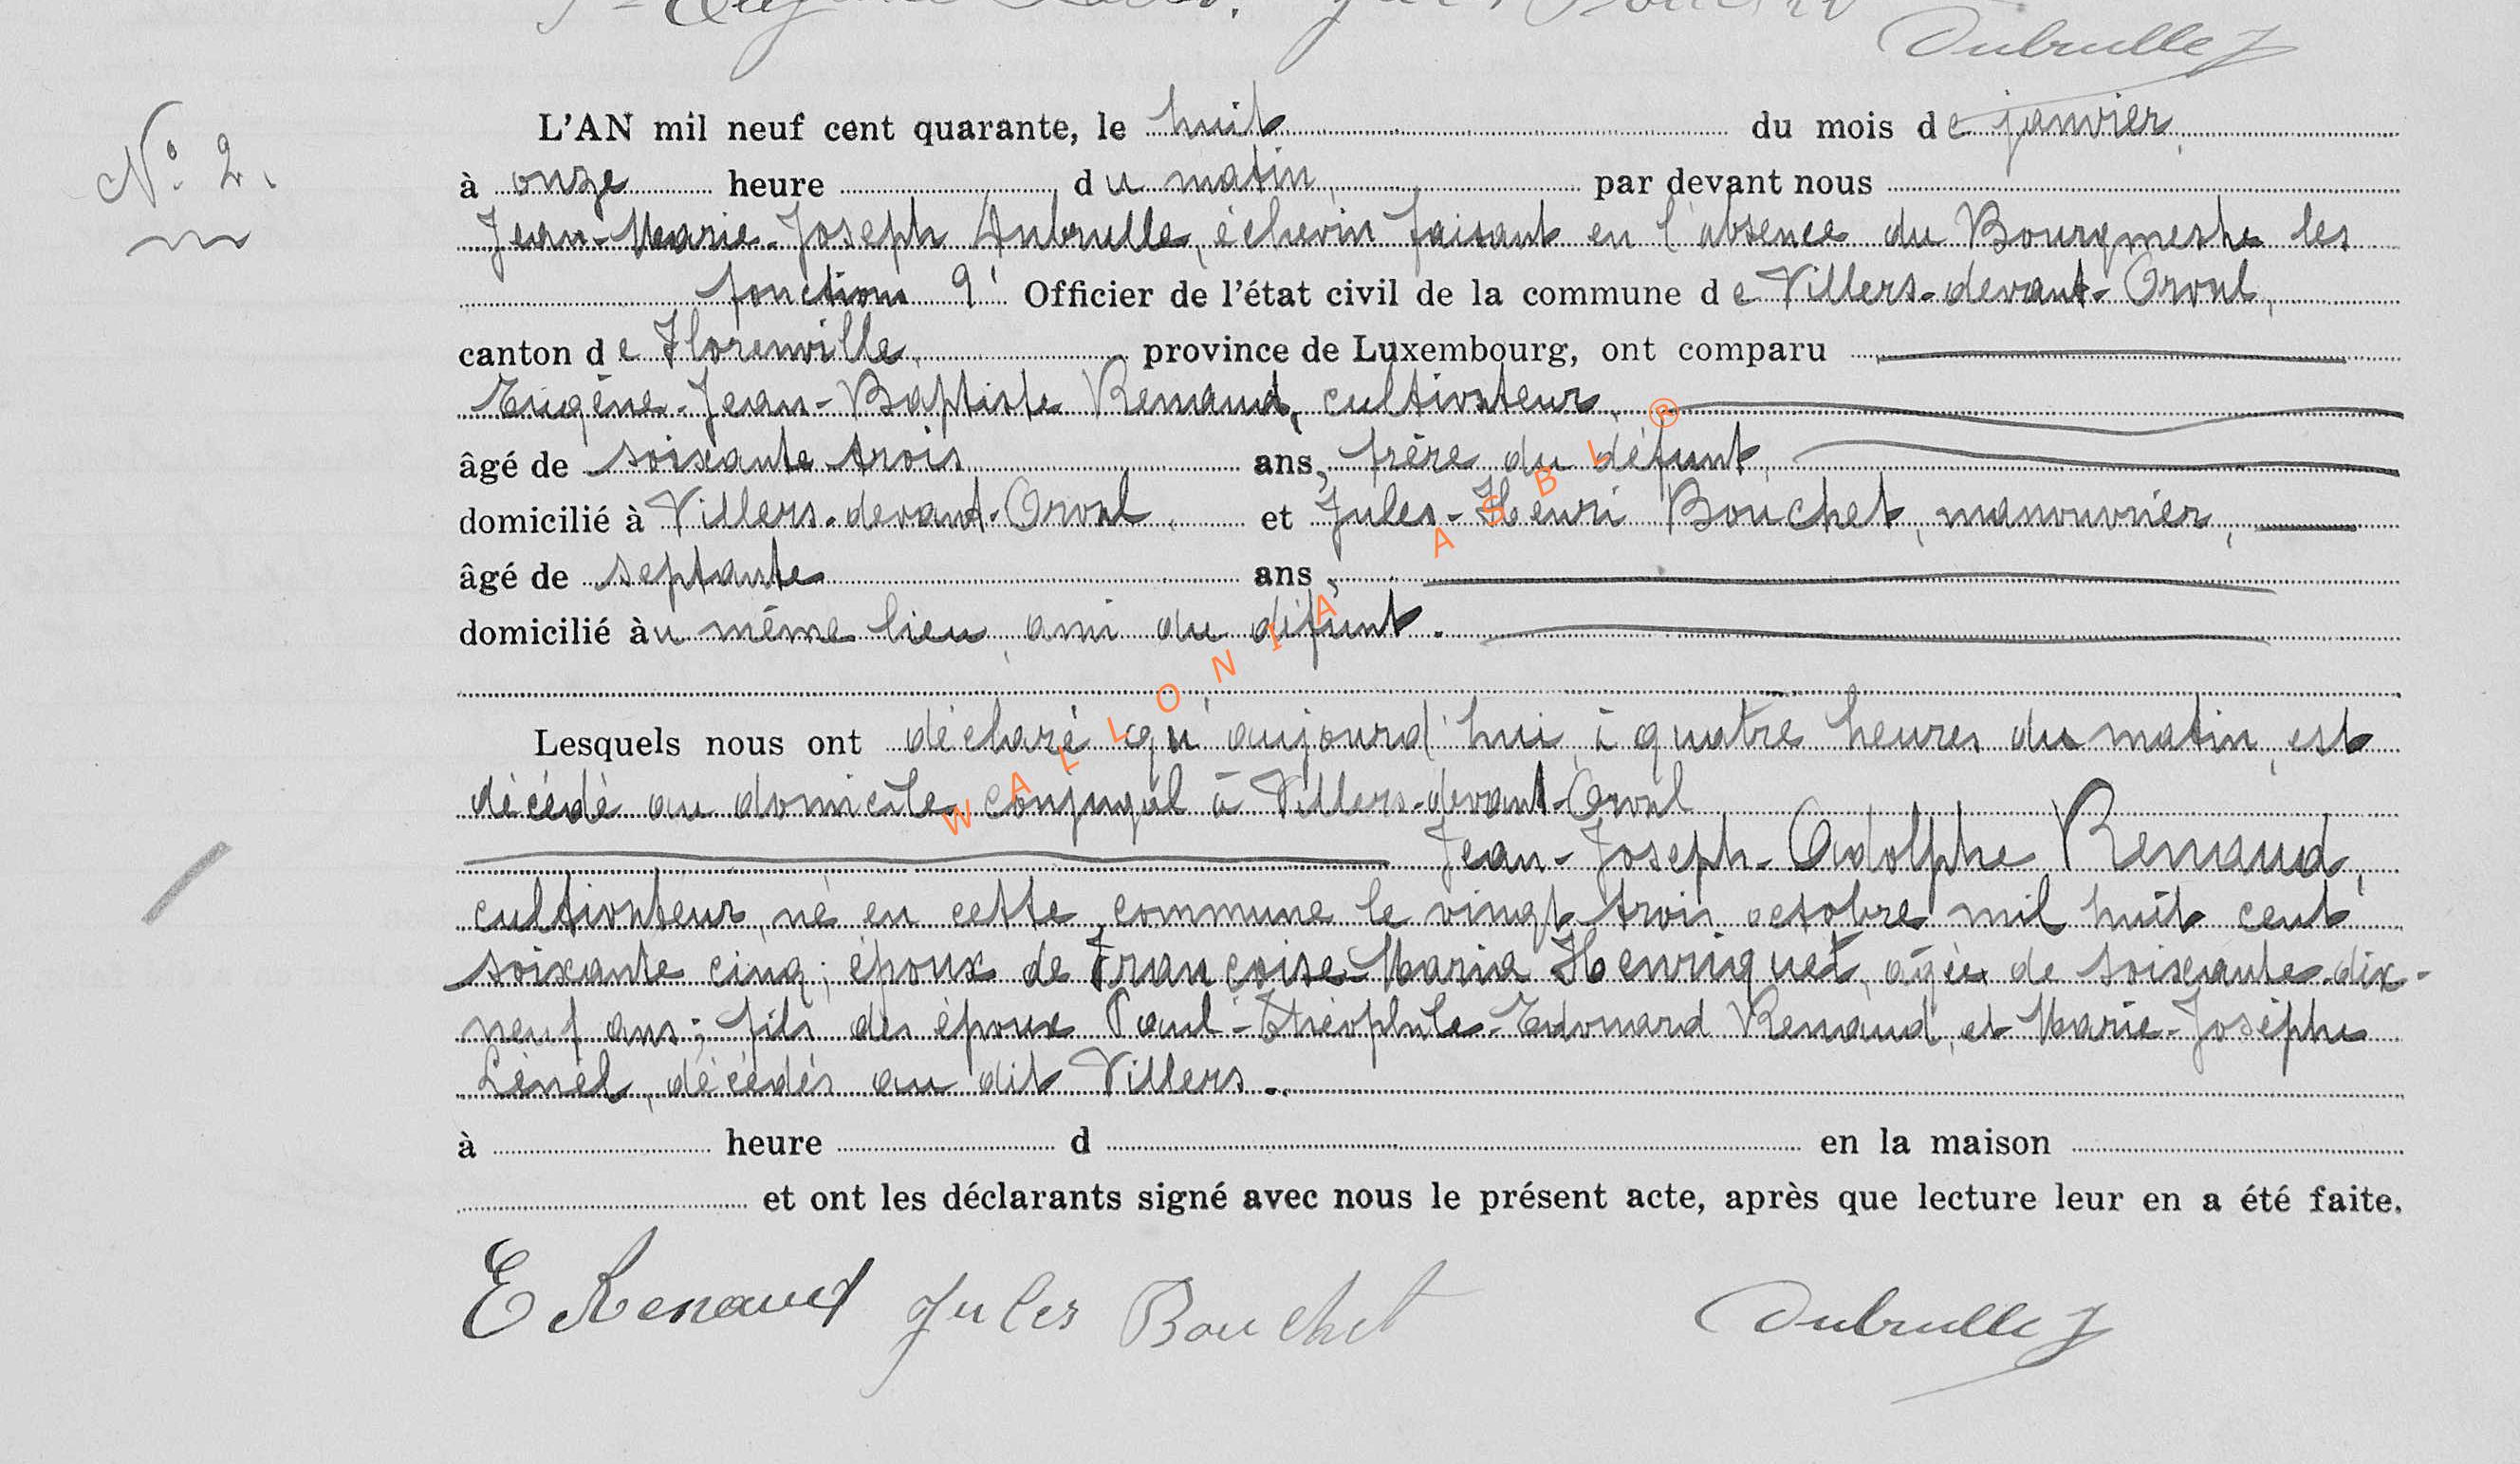 Dubrulle J
N° 2.
L'AN mil neuf cent quarante, le huit du mois de janvier,
à onze heure du matin, par devant nous
Jean-Marie-Joseph Dubrulle, échevin faisant en l'absence du Bourgmestre les
fonctions d' Officier de l'état civil de la commune de Villers-devant-Orval,
canton de Florenville, province de Luxembourg, ont comparu
Eugène-Jean-Baptiste Renaud, cultivateur,
âgé de soixante trois ans, frère du défunt,
domicilié à Villers-devant-Orval, et Jules-Henri Bouchet, manouvrier,
âgé de septante ans,
domicilié au même lieu, ami du défunt.
Lesquels nous ont déclaré qu'aujourd'hui, à quatre heures du matin, est
décédé au domicile conjugal à Villers-devant-Orval
Jean-Joseph-Adolphe Renaud,
cultivateur, né en cette commune le vingt trois octobre mil huit cent
soixante cinq; époux de Françoise-Maria Henriquet, âgée de soixante-dix-
neuf ans; fils des époux Paul-Théophile-Edouard Renaud, et Marie-Josèphe
Lénel, décédés au dit Villers.
à heure d en la maison
et ont les déclarants signé avec nous le présent acte, après que lecture leur en a été faite.
E Renaud Jules Bouchet Dubrulle J
WALLONIA ASBL ®